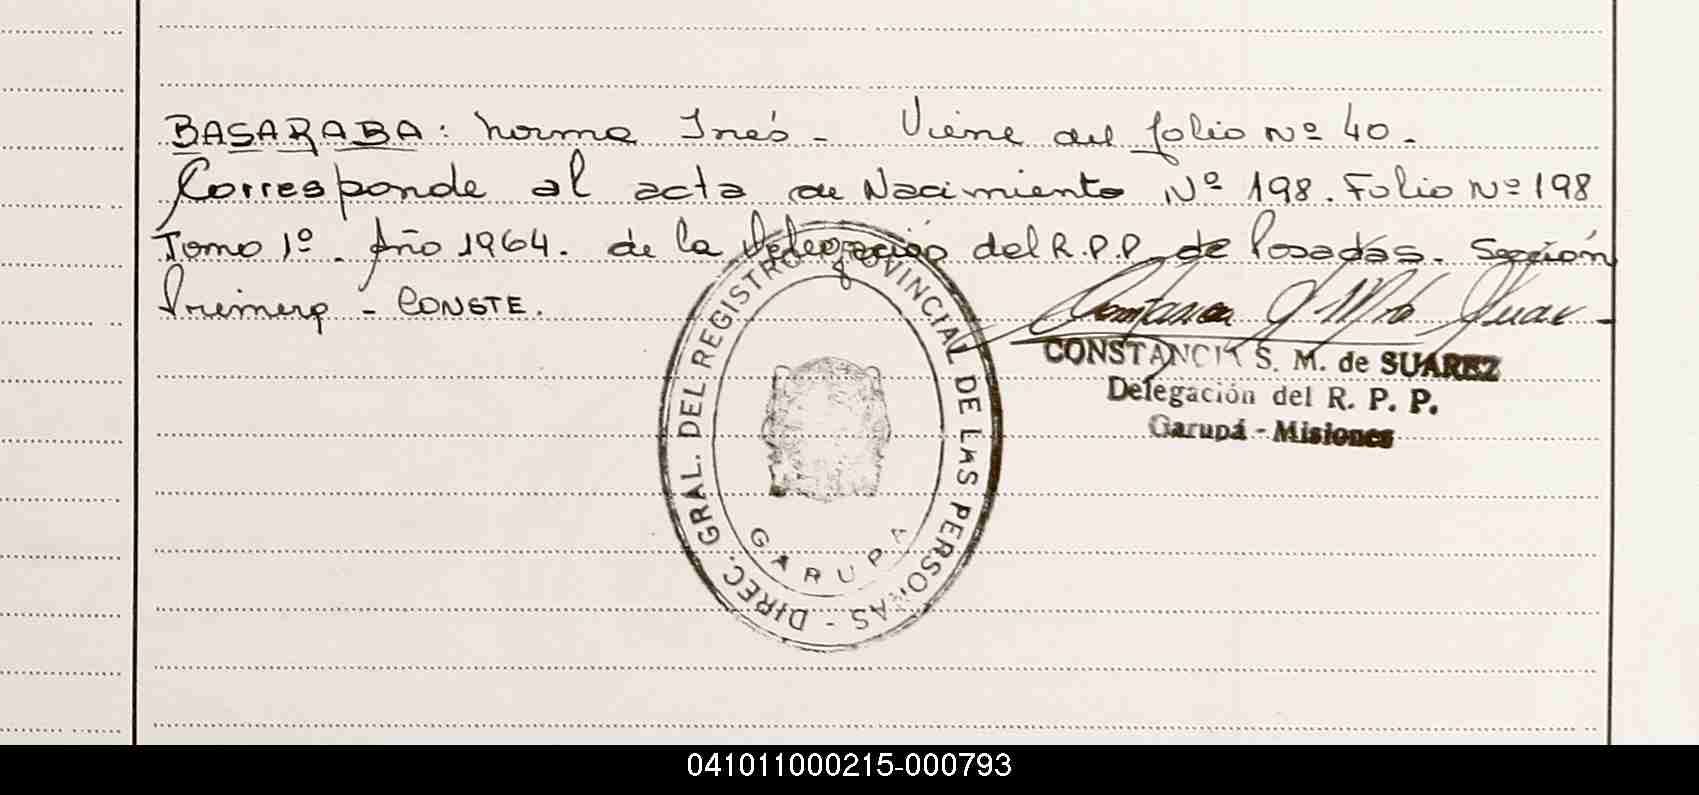 BASARABA: Norma Inés - Viene del folio Nº 40.
Corresponde al acta de Nacimiento Nº 198. Folio Nº 198
Tomo 1º. Año 1964. de la Delegación del R.P.P. de Posadas. Sección
Primera - CONSTE.
CONSTANCIA S. M. de SUAREZ
Delegación del R. P. P.
Garupá - Misiones
DIREC. GRAL. DEL REGISTRO PROVINCIAL DE LAS PERSONAS -
GARUPA
041011000215-000793